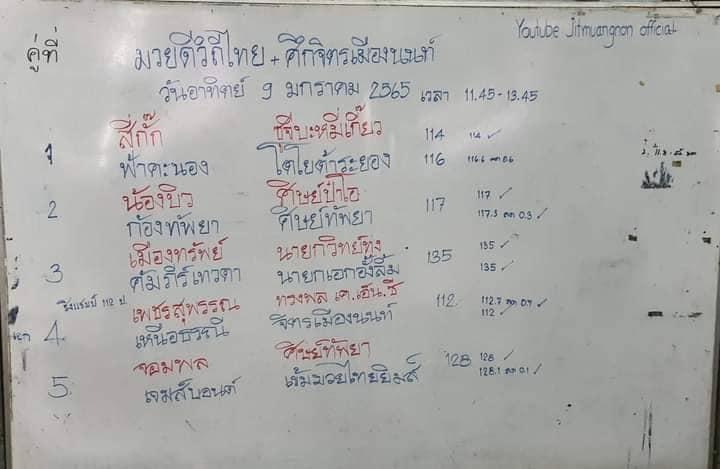 Youtube Jitmuangnon official
คู่ที่ มวยดีวิถีไทย + ศึกจิตรเมืองนนท์
วันอาทิตย์ 9 มกราคม 2565 เวลา 11.45 - 13.45
1 สี่กั๊ก ชูจีบะหมี่เกี๊ยว 114 114 ✓
ฟ้าคะนอง โตโยต้าระยอง 116 116.6 ลด 0.6
2 น้องบิว ศิษย์ป๋าไอ 117 117 ✓
ก้องทัพยา ศิษย์ทัพยา 117.3 ลด 0.3 ✓
3 เมืองทรัพย์ นายกวิทย์ทุ่ง 135 135 ✓
คัมภีร์เทวดา นายกเอกอั้งลิ้ม 135 ✓
ชิงแชมป์ 112 ป. เพชรสุพรรณ ทรงพล เค.เอ็น.ซี 112 112.7 ลด 0.7 ✓
4. เหนือธรณี จิตรเมืองนนท์ 112 ✓
จอมพล ศิษย์ทัพยา 128 128 ✓
5. เจมส์บอนด์ เข้มมวยไทยยิมส์ 128.1 ลด 0.1 ✓